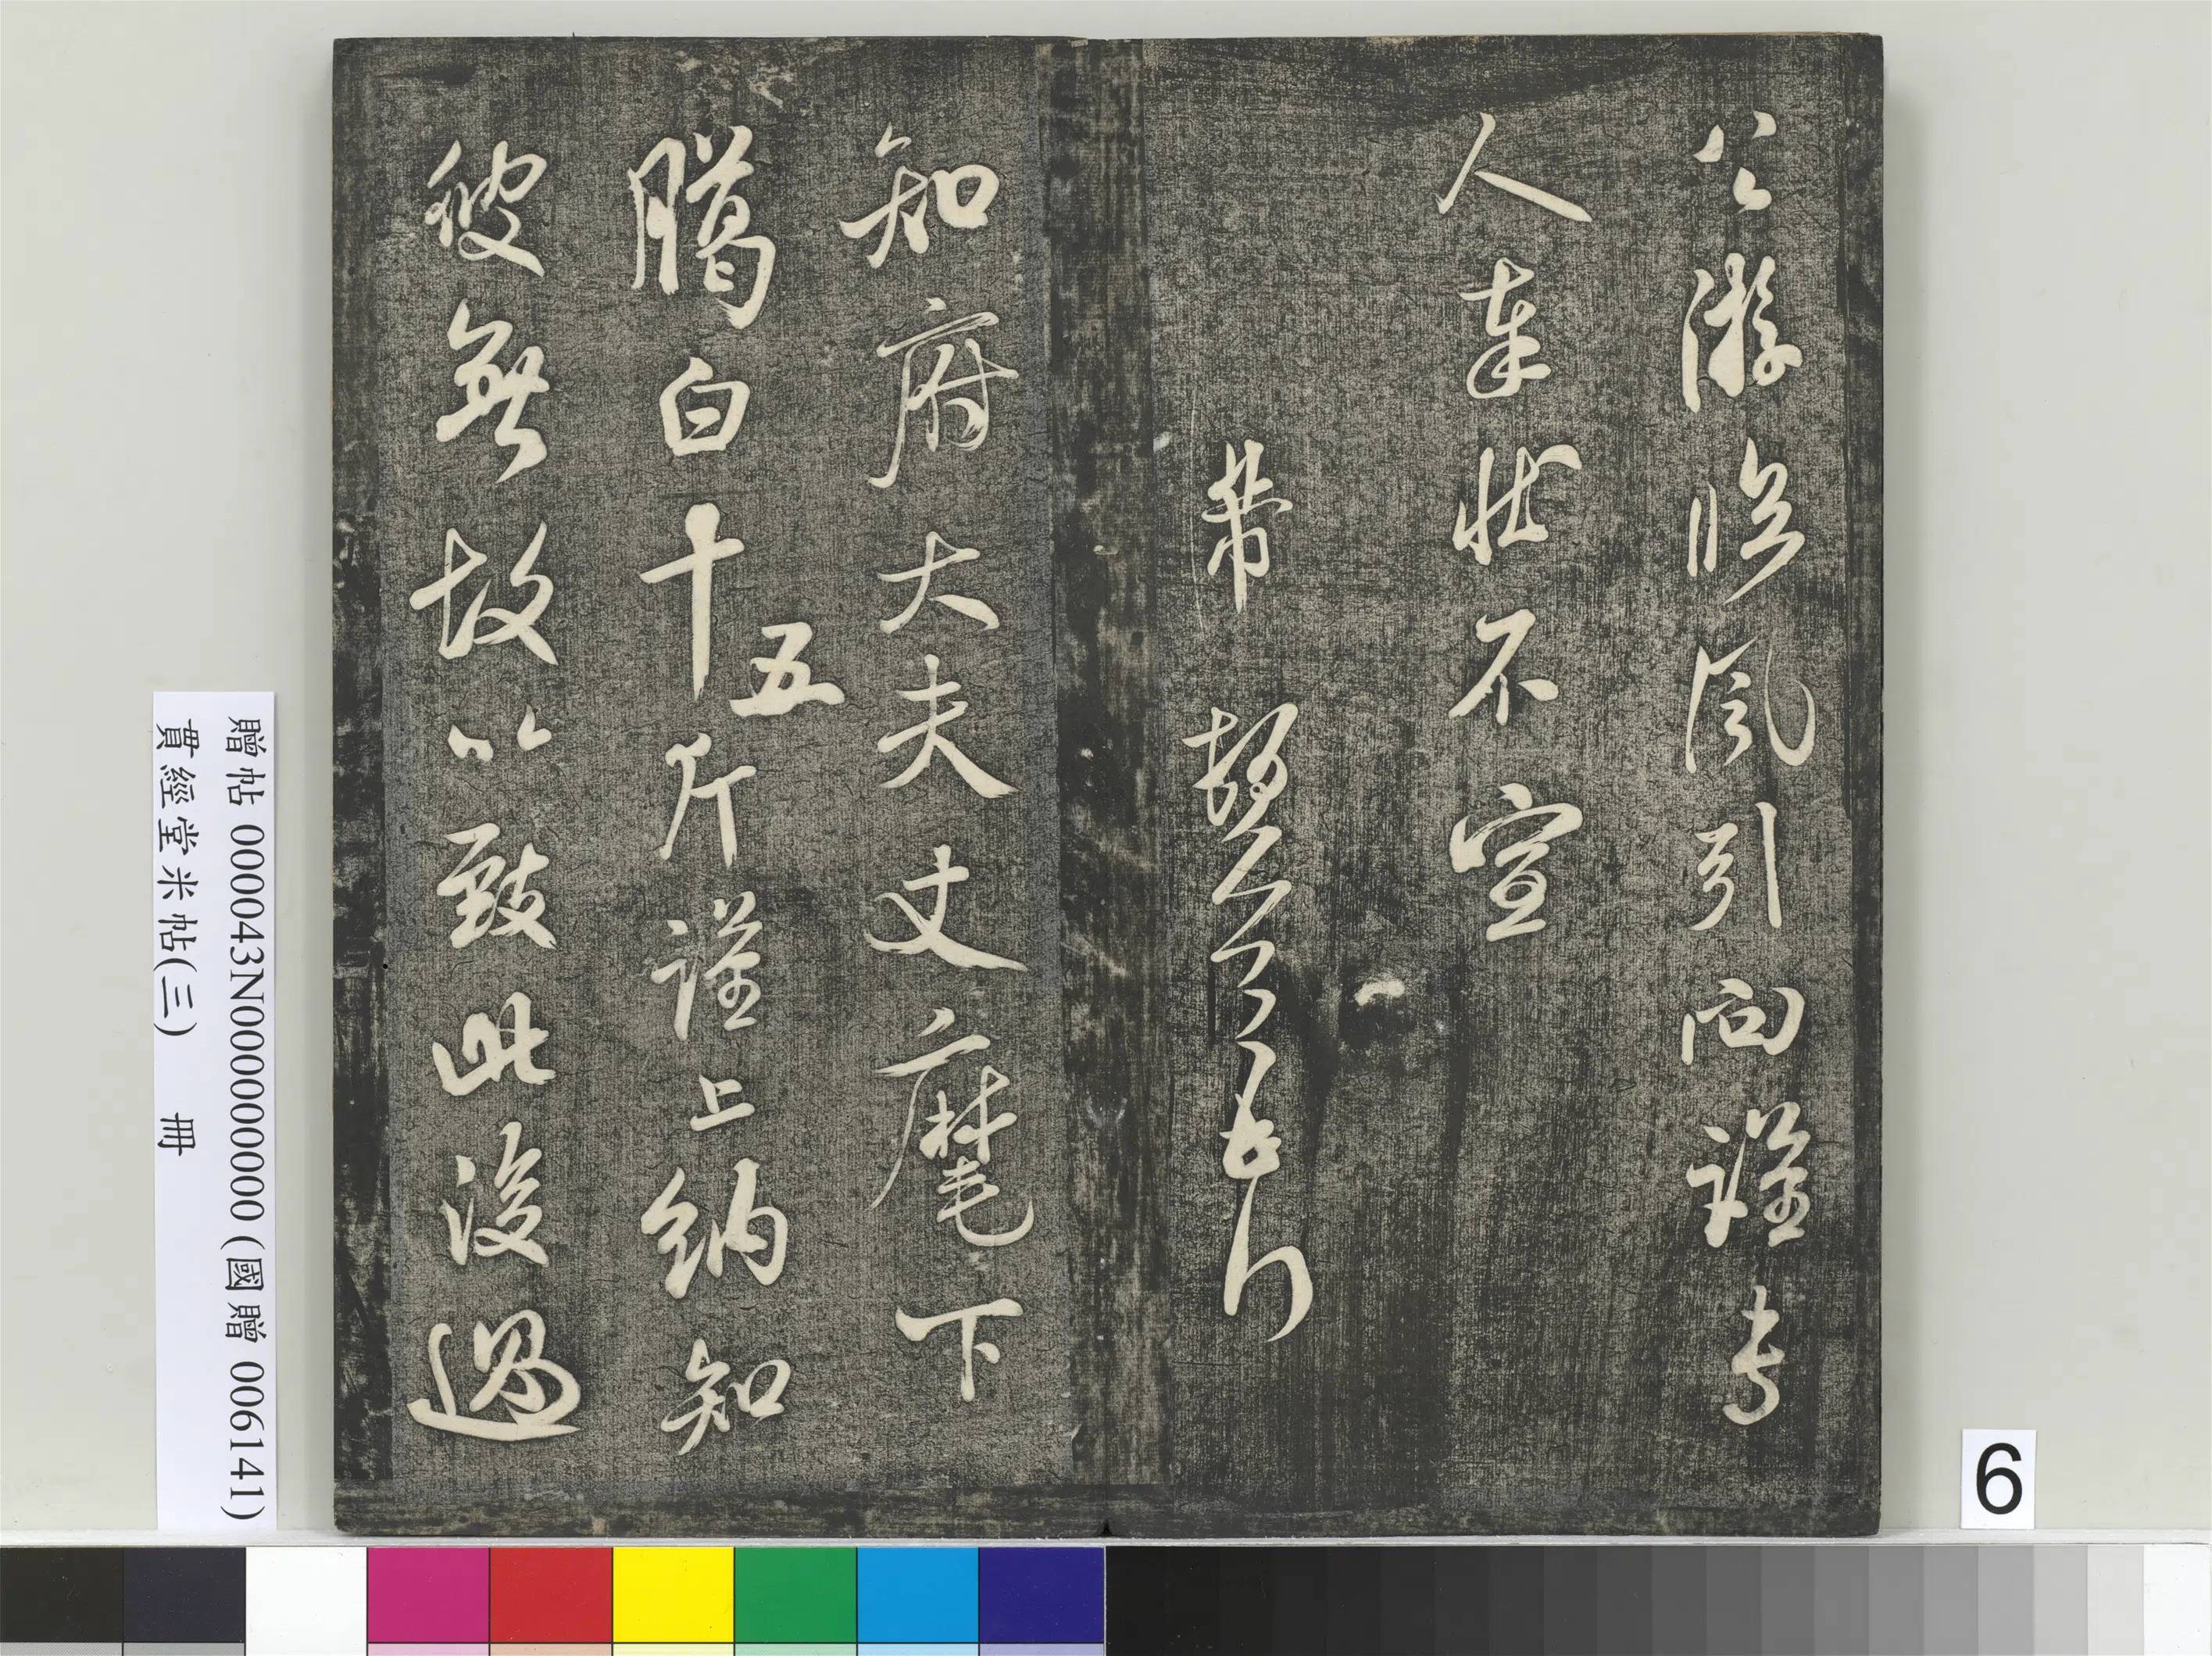 公游臨風引向謹專
人奉狀不宣
芾
知府大夫丈麾下
臈白十五斤謹上納知
彼無故以致此後遇
贈帖 000043N000000000 (國贈 006141)
貫經堂米帖(三) 冊
6